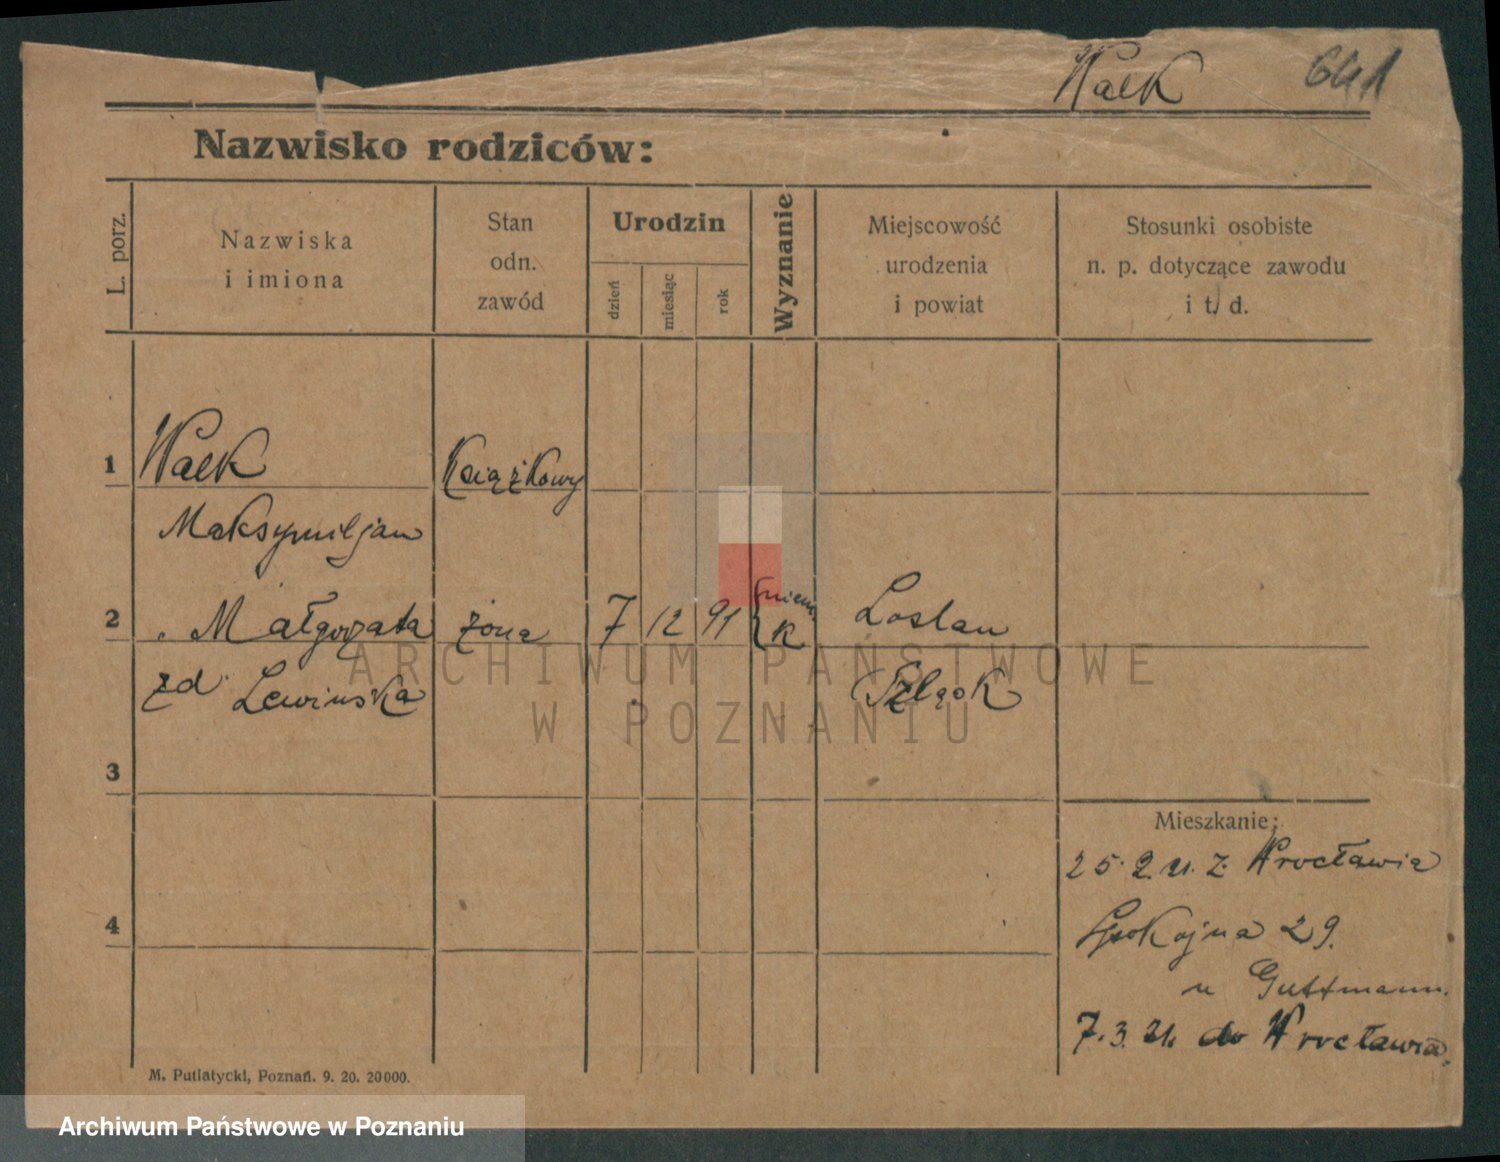 Wałk 641
Nazwisko rodziców:
L. porz.
Nazwiska
i imiona
Stan
odn.
zawód
Urodzin
dzień
miesiąc
rok
Wyznanie
Miejscowość
urodzenia
i powiat
Stosunki osobiste
n. p. dotyczące zawodu
i t. d.
1 Książkowy
Maksymiljan
2 Małgorzata żona 7 12 91 k Loslau
zd. Lewinska Szląsk
3
Mieszkanie:
25. 2. 21. z. Wrocławia
4
Spokojna 29.
u Guttmann.
7. 3. 21. do Wrocławia.
M. Putiatycki, Poznań. 9. 20. 20000.
ARCHIWUM PAŃSTWOWE
W POZNANIU
Archiwum Państwowe w Poznaniu